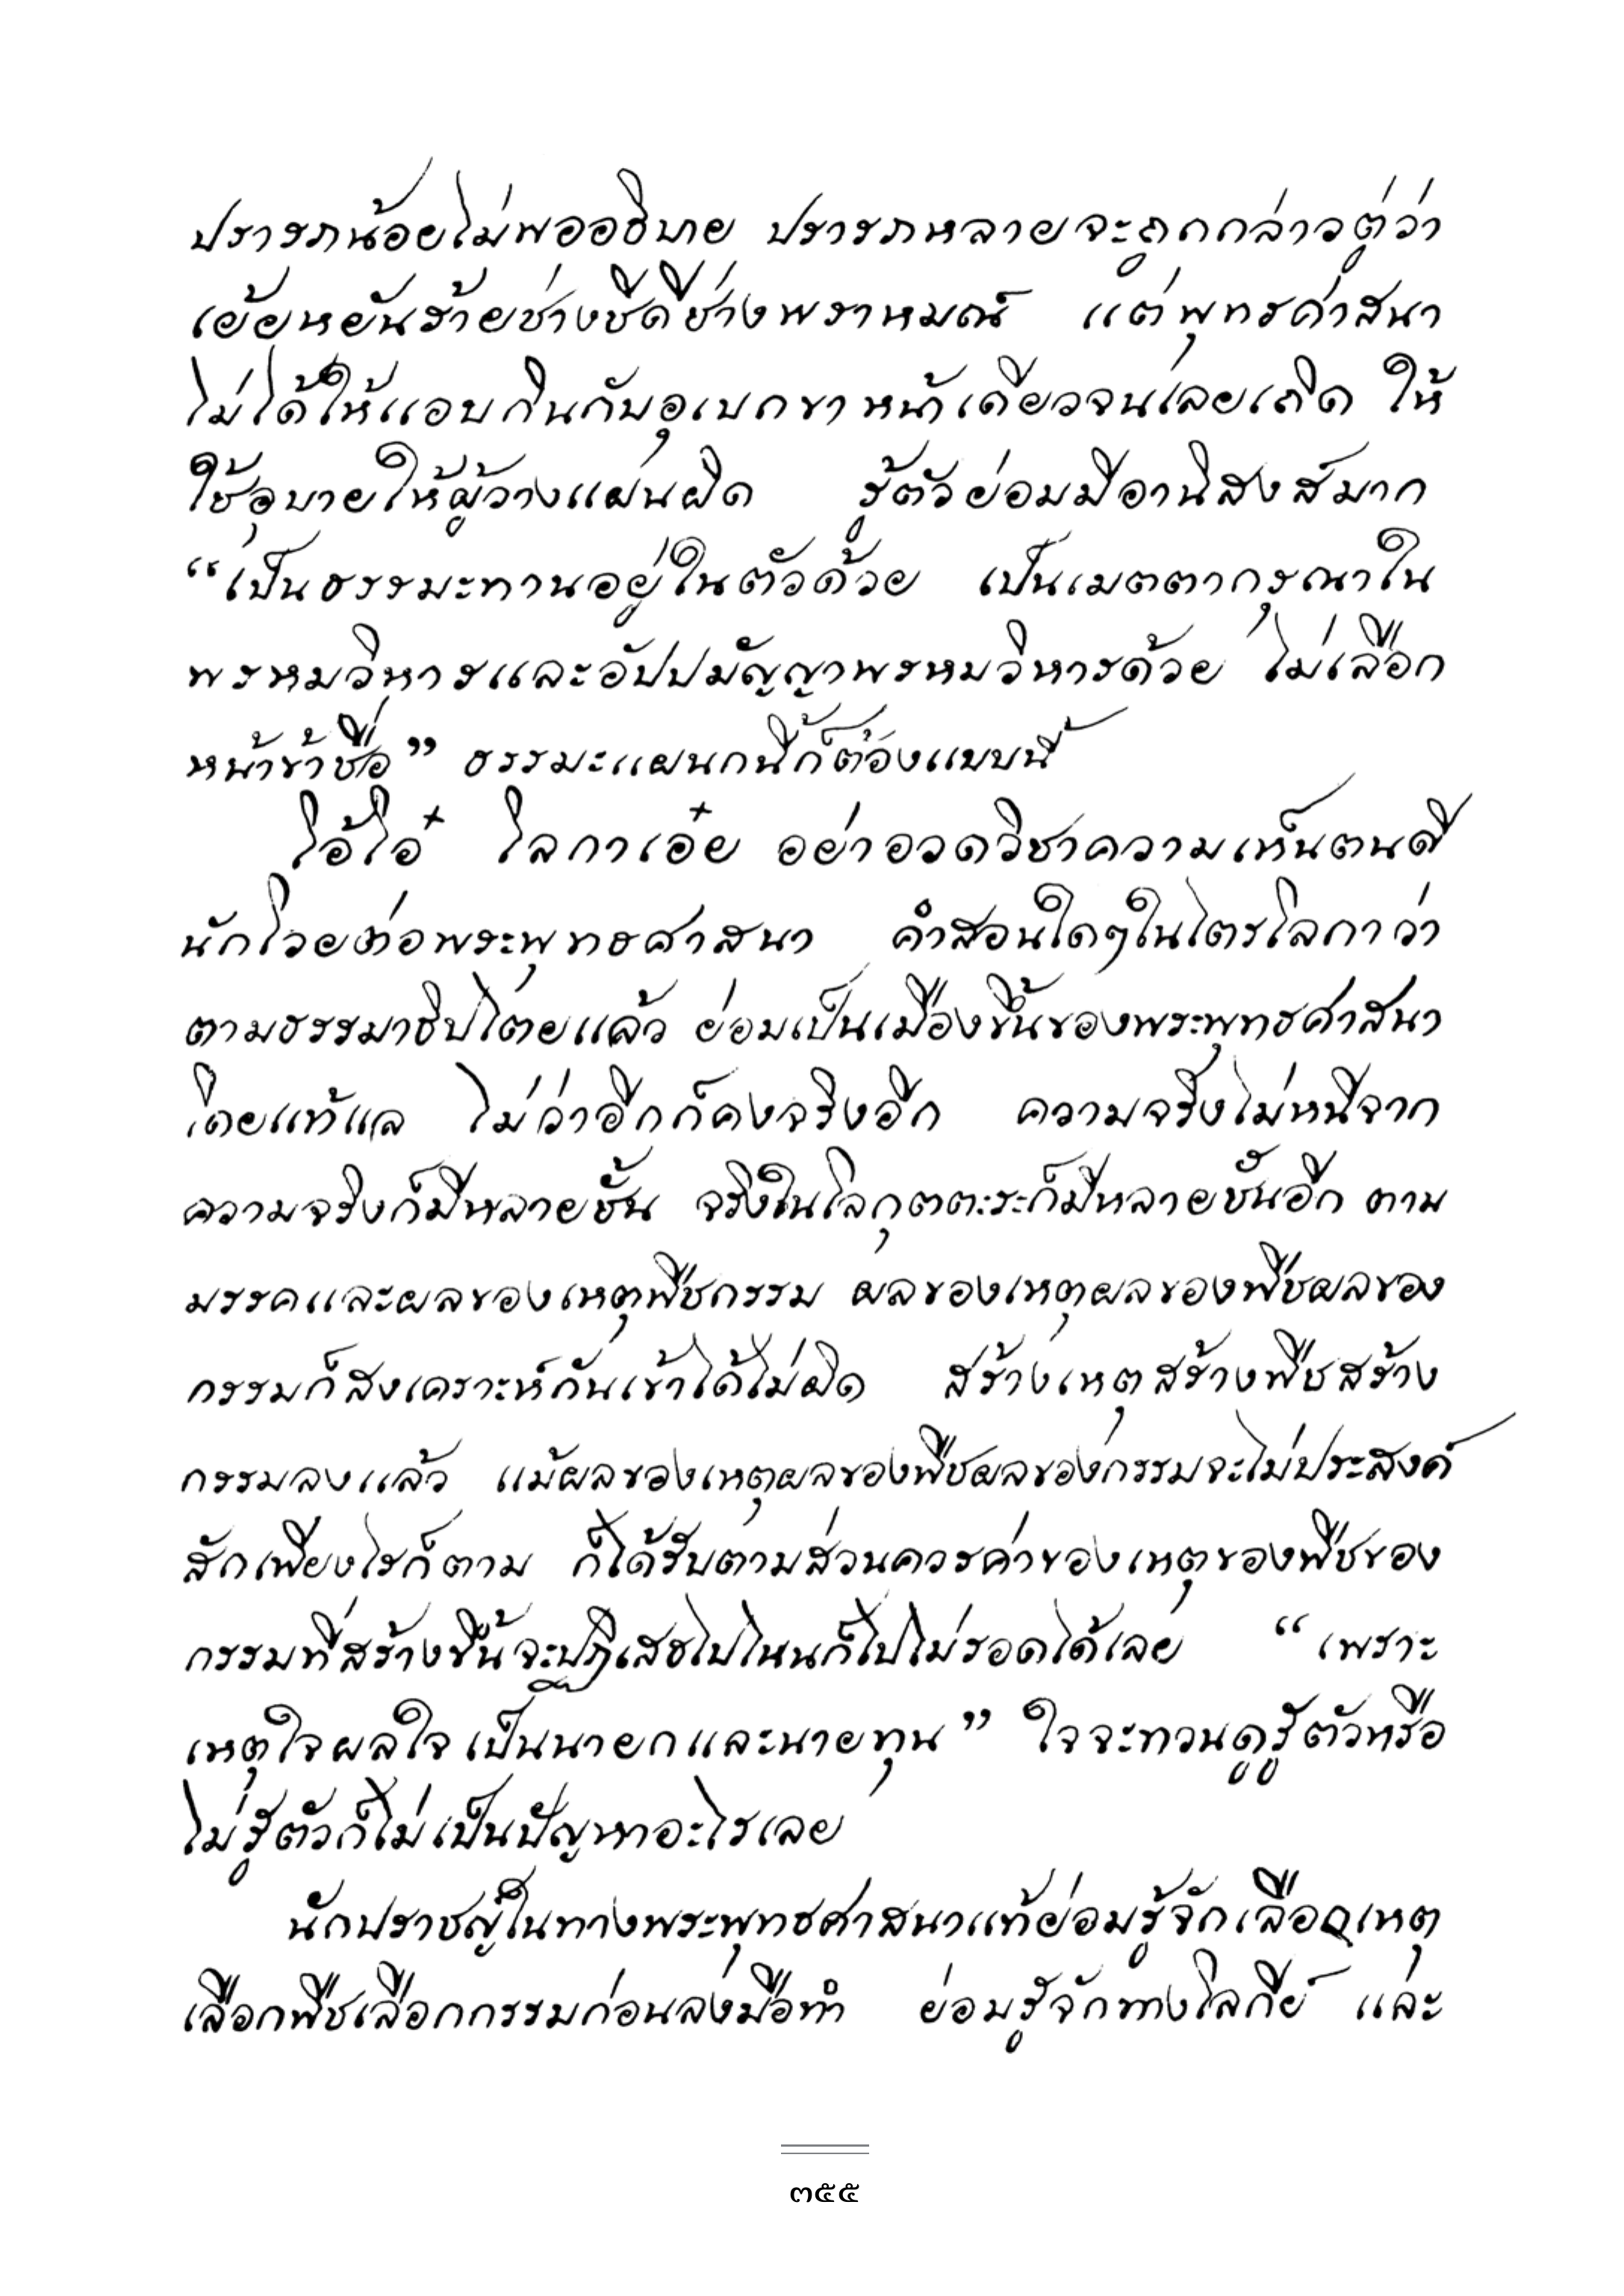 ปรารภน้อยไม่พออธิบาย ปรารภหลายจะถูกกล่าวตู่ว่า
เย้ยหยันร้ายช่างชีดีช่างพราหมณ์ แต่พุทธศาสนา
ไม่ได้ให้แอบกินกับอุเบกขาหน้าเดียวจนเลยเถิด ให้
ใช้อุบายให้ผู้วางแผ่นผิด รู้ตัวย่อมมีอานิสงส์มาก
“เป็นธรรมะทานอยู่ในตัวด้วย เป็นเมตตากรุณาใน
พรหมวิหารและอัปปมัญญาพรหมวิหารด้วย ไม่เลือก
หน้าข้าชื่อ” ธรรมะแผนกนี้ก็ต้องแบบนี้
โอ้โอ๋ โลกาเอ๋ย อย่าอวดวิชาความเห็นตนดี
นักโวยต่อพระพุทธศาสนา คำสอนใดๆในไตรโลกาว่า
ตามธรรมาธิปไตยแล้ว ย่อมเป็นเมืองขึ้นของพระพุทธศาสนา
โดยแท้แล ไม่ว่าอีกก็คงจริงอีก ความจริงไม่หนีจาก
ความจริงก็มีหลายชั้น จริงในโลกุตตะระก็มีหลายชั้นอีก ตาม
มรรคและผลของเหตุพืชกรรม ผลของเหตุผลของพืชผลของ
กรรมก็สงเคราะห์กันเข้าได้ไม่ผิด สร้างเหตุสร้างพืชสร้าง
กรรมลงแล้ว แม้ผลของเหตุผลของพืชผลของกรรมจะไม่ประสงค์
สักเพียงไรก็ตาม ก็ได้รับตามส่วนควรค่าของเหตุของพืชของ
กรรมที่สร้างขึ้นจะปฏิเสธไปไหนก็ไปไม่รอดได้เลย “เพราะ
เหตุใจผลใจ เป็นนายกและนายทุน” ใจจะทวนดูรู้ตัวหรือ
ไม่รู้ตัวก็ไม่เป็นปัญหาอะไรเลย
นักปราชญ์ในทางพระพุทธศาสนาแท้ย่อมรู้จักเลือกเหตุ
เลือกพืชเลือกกรรมก่อนลงมือทำ ย่อมรู้จักทางโลกีย์ และ
๓๕๕